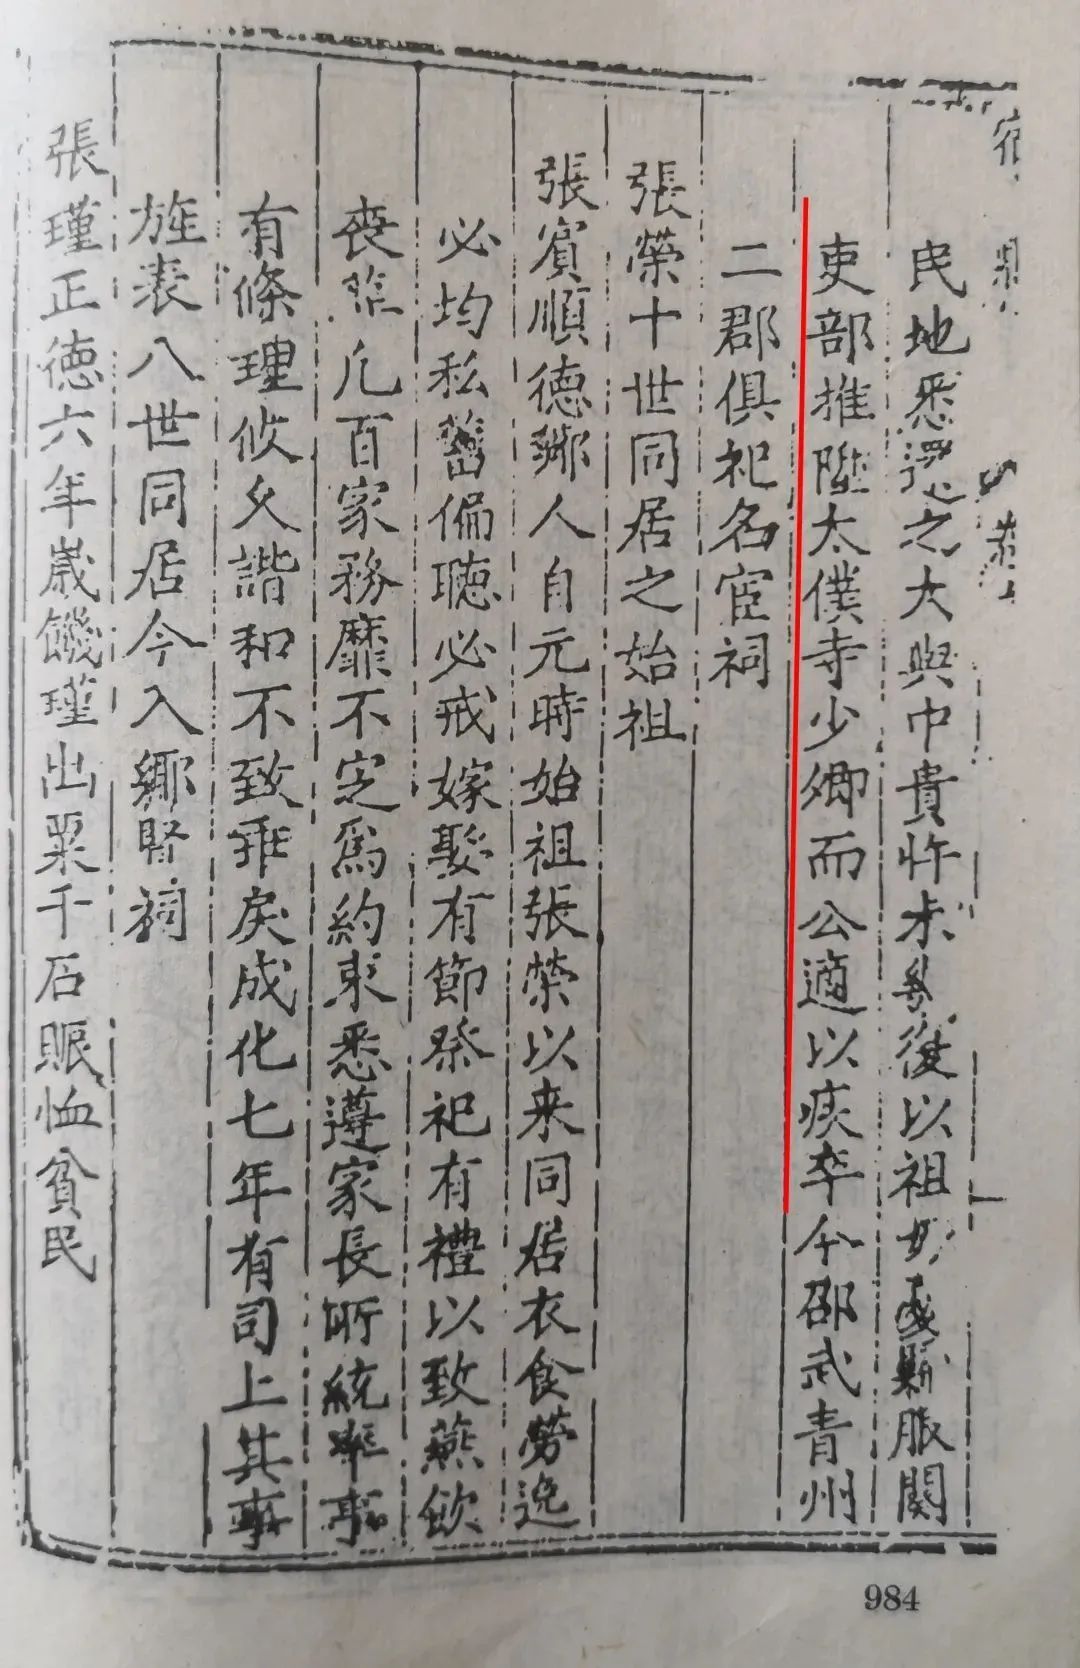 民地悉還之大與中貴忤未幾後以祖母憂歸服闋
吏部推陞太僕寺少卿而公適以疾卒今邵武青州
二郡俱祀名宦祠
張榮十世同居之始祖
張賓順德鄉人自元時始祖張榮以来同居衣食勞逸
必均私蓄偏聽必戒嫁娶有節祭祀有禮以致燕飲
喪葬凡百家務靡不定為約束悉遵家長所統率事
有條理攸久諧和不致乖戾成化七年有司上其事
旌表八世同居今入鄉賢祠
張瑾正德六年歲饑瑾出粟千石賑恤貧民
984